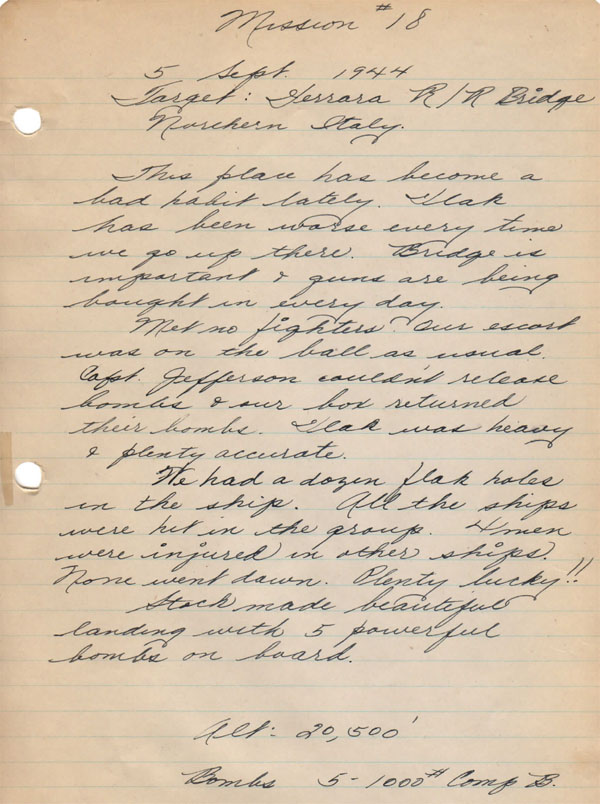 Mission #18
5 Sept. 1944
Target: Ferrara R/R Bridge
Northern Italy.
This place has become a
bad habit lately. Flak
has been worse every time
we go up there. Bridge is
important & guns are being
bought in every day.
Met no fighters. Our escort
was on the ball as usual.
Capt. Jefferson couldn't release
bombs & our box returned
their bombs. Flak was heavy
& plenty accurate.
We had a dozen flak holes
in the ship. All the ships
were hit in the group. 4 men
were injured in other ships.
None went down. Plenty lucky!!
Stock made beautiful
landing with 5 powerful
bombs on board.
Alt: 20,500'
Bombs 5-1000# Comp B.